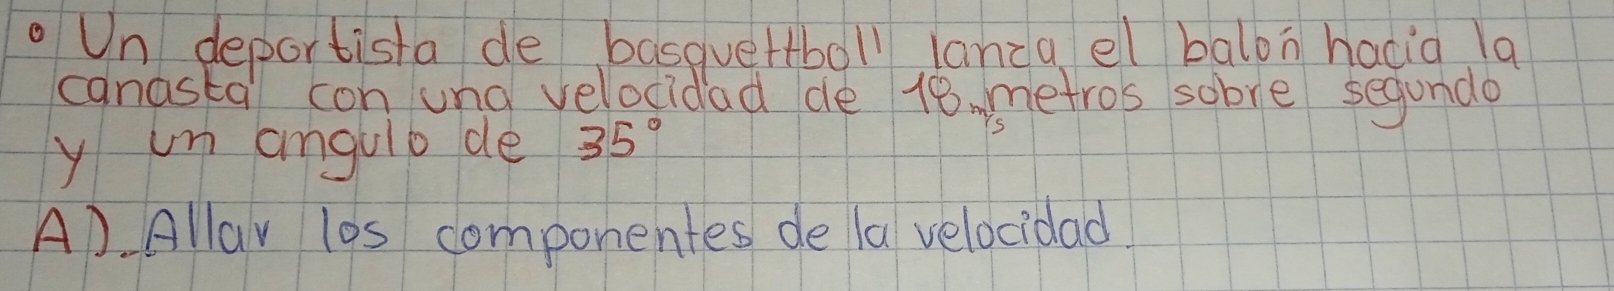 • Un deportista de basquettboll lanza el balon hacia la
canasta con una velocidad de 18 m/s metros sobre segundo
y un angulo de 35°
A). Allar los componentes de la velocidad.